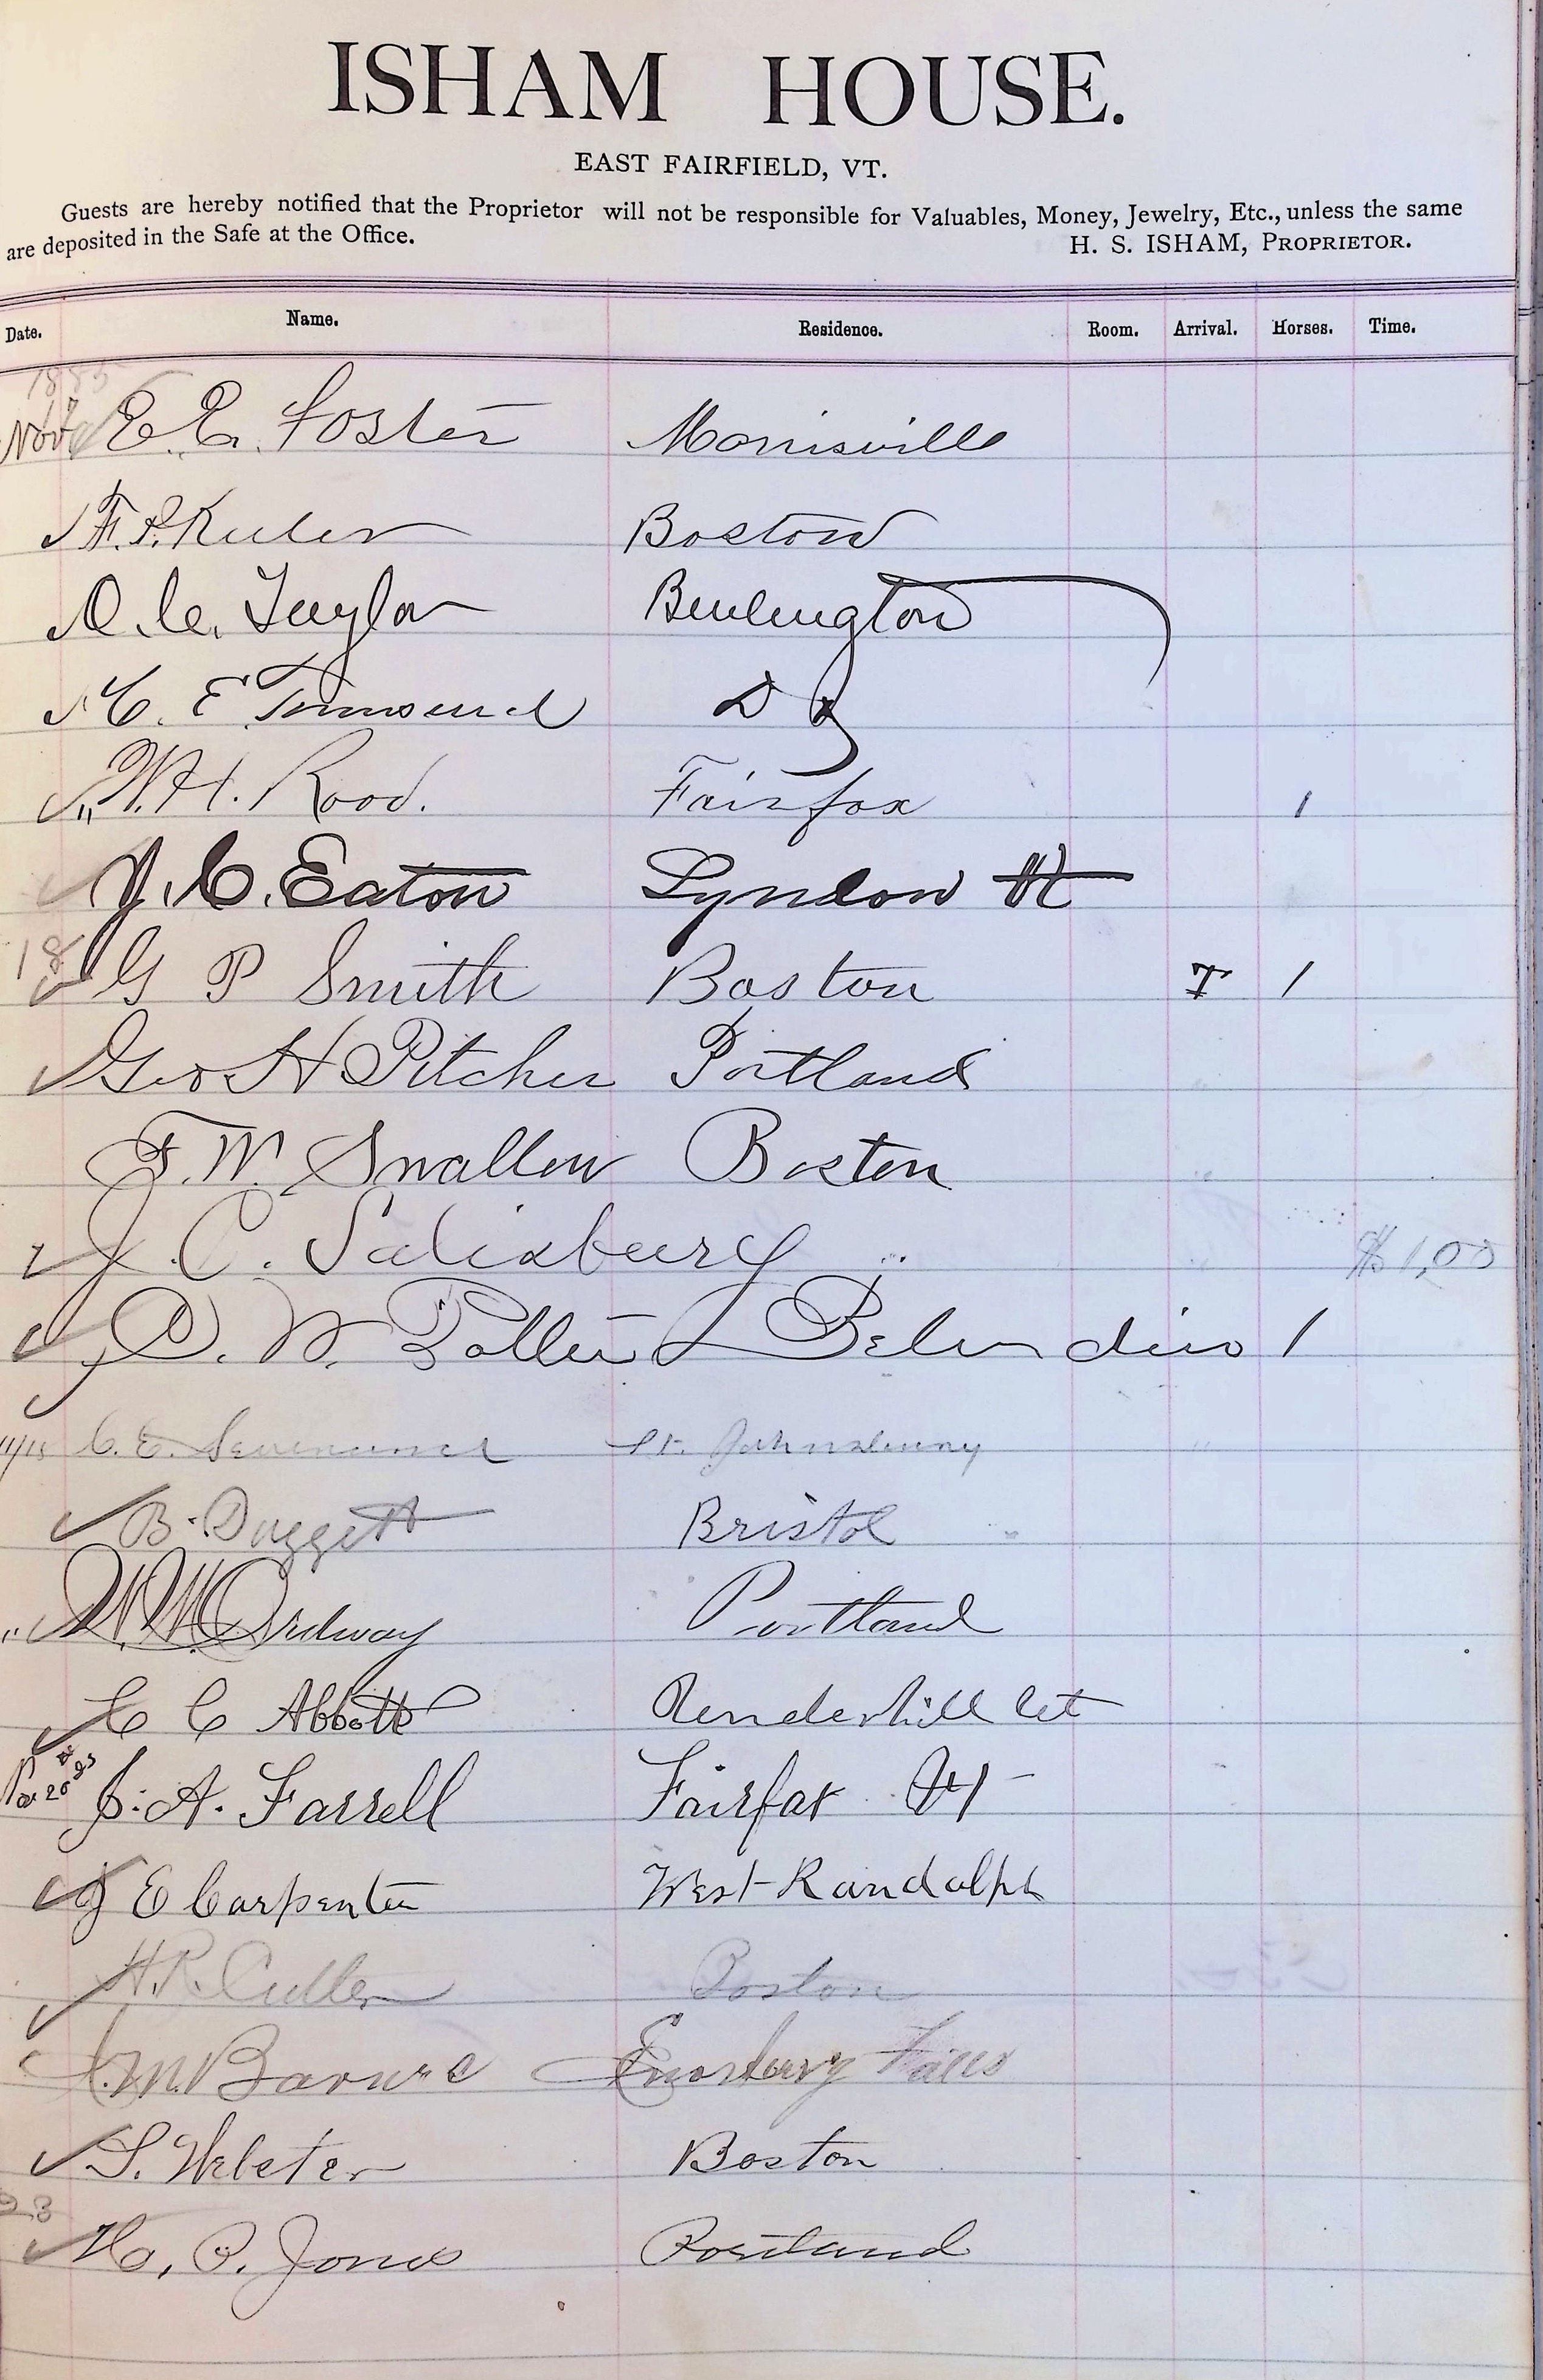 ISHAM HOUSE.
EAST FAIRFIELD, VT.
Guests are hereby notified that the Proprietor will not be responsible for Valuables, Money, Jewelry, Etc., unless the same
are deposited in the Safe at the Office. H. S. ISHAM, PROPRIETOR.
Date. Name. Residence. Room. Arrival. Horses. Time.
1885
Nov E. E. Foster Morrisville
F. P. Boston
O. C. Taylor Burlington
C. E Townsend Do
" W. H. Rood. Fairfax 1
J. C. Eaton Lyndon Vt
18 G P Smith Boston T 1
Geo H Pitcher Portland
F. W. Swallow Boston
J. C. Salisbury $1,00
D. W. Potter Belvidire 1
C. E. St. Johnsbury
B. Daggett Bristol
" W. W. Ordway Portland
C C Abbott Underhill
Nov 20 85 J. A. Farrell Fairfax Vt
J E Carpenter West Randolph
H. R. Cutler Boston
A. M. Barnes Enosburg Falls
S. Webster Boston
23 H. P. Jones Portland